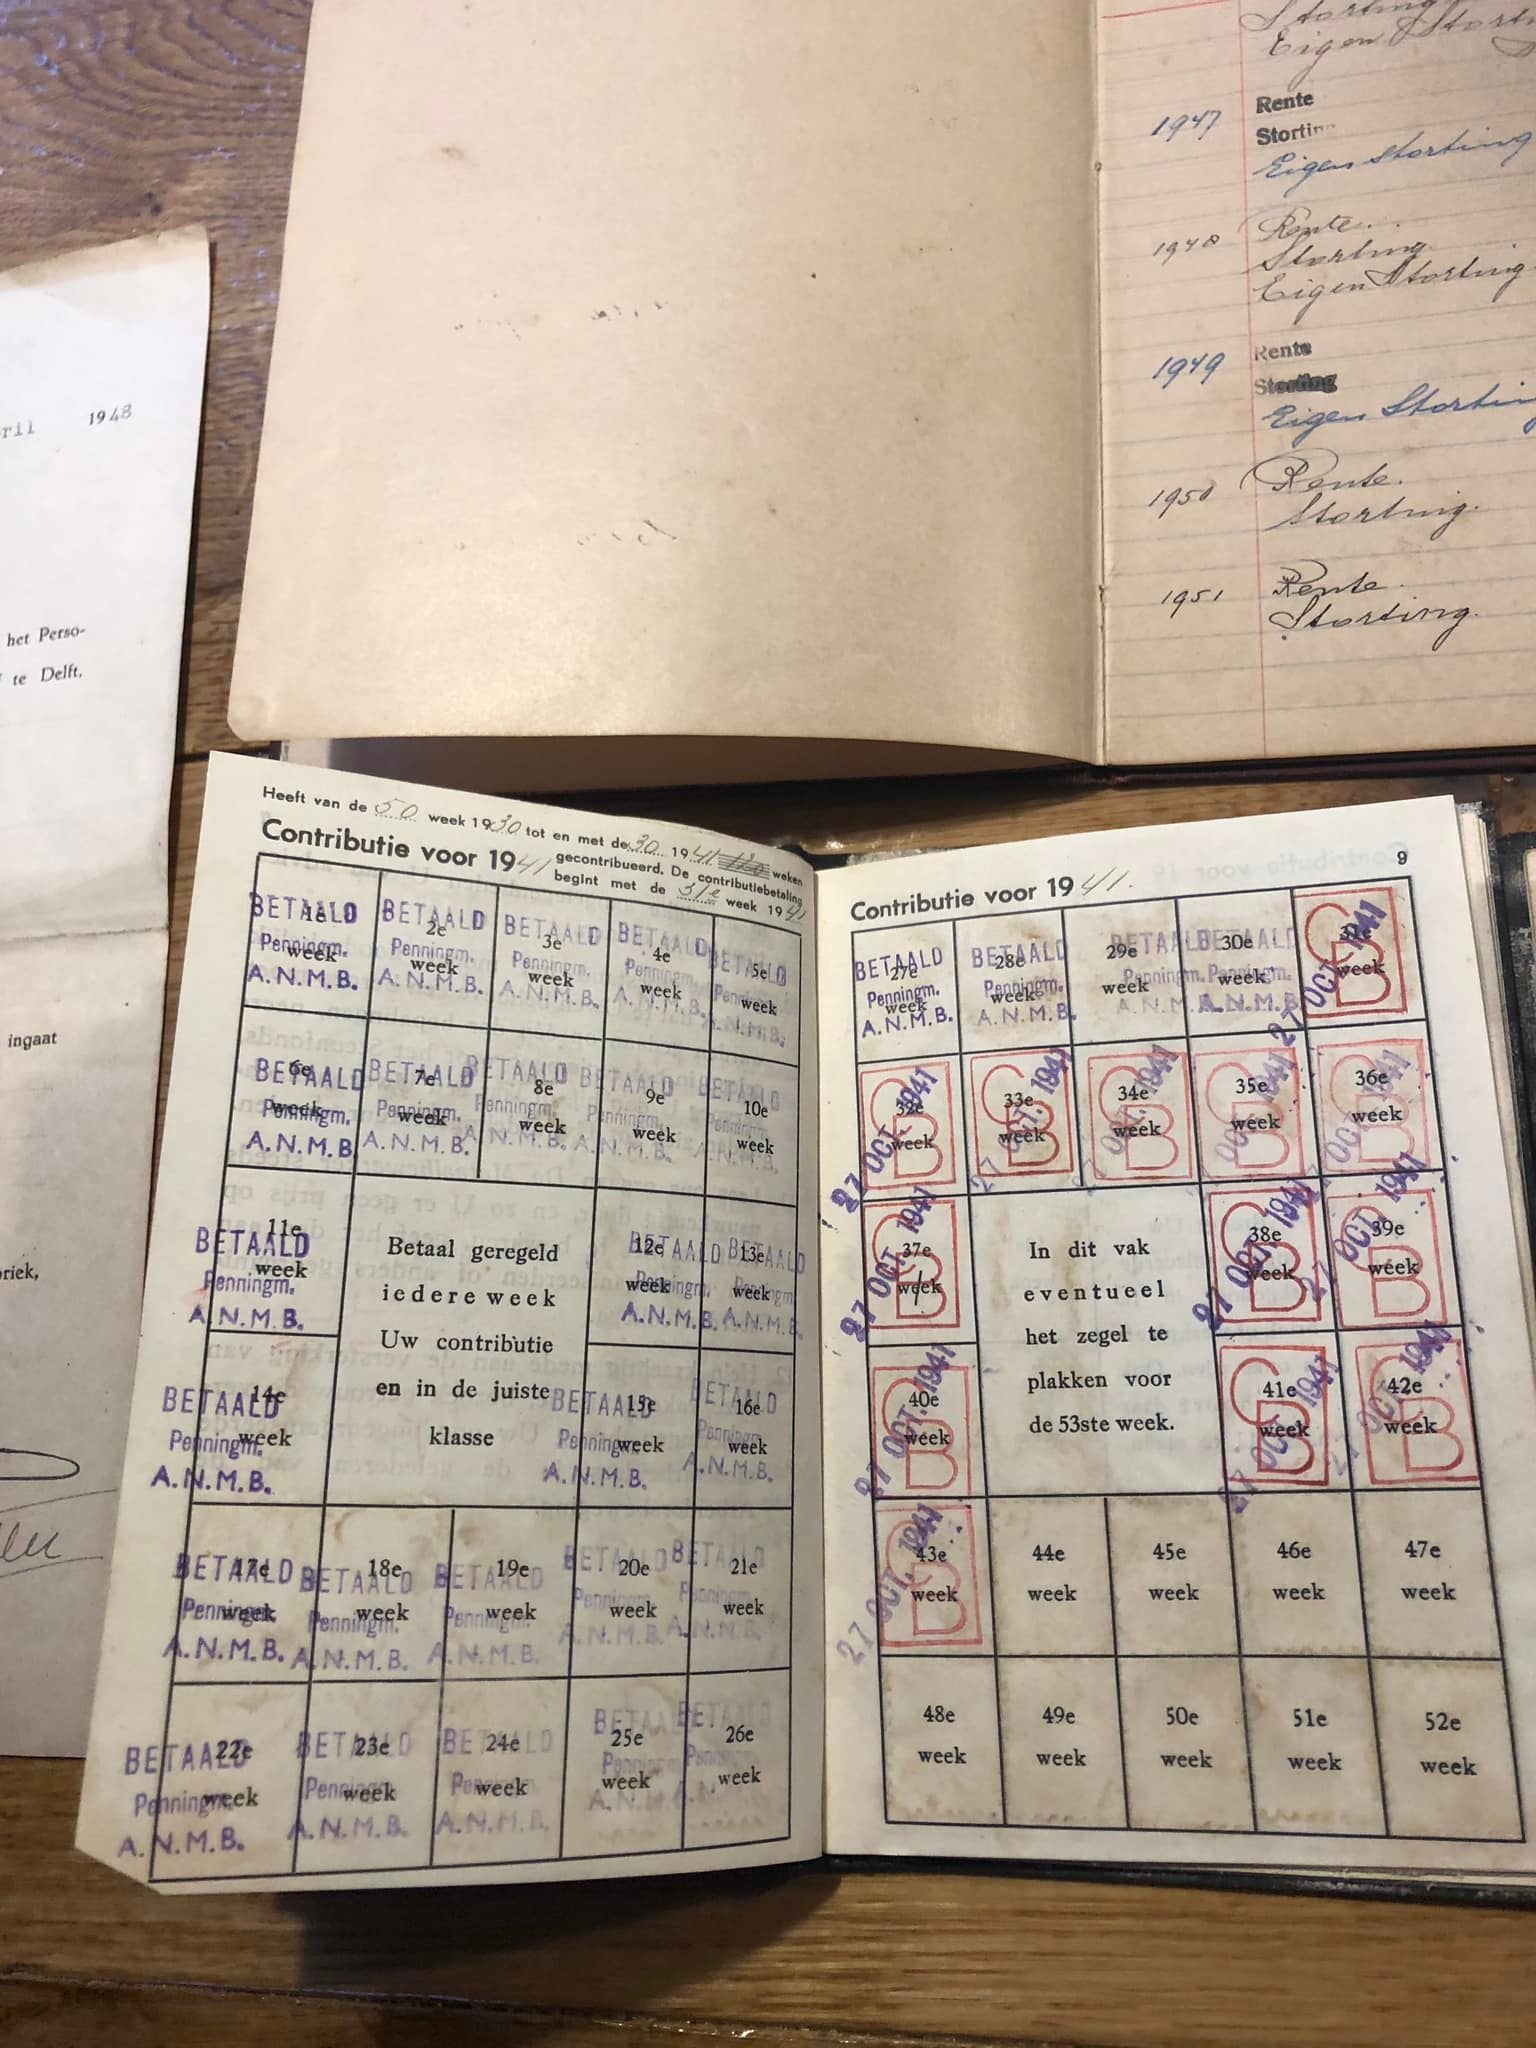 Storting
Eigen Storting
1947 Rente
Storting
Eigen Storting
1948 Rente.
Storting.
Eigen Storting.
1949 Rente
Storting
Eigen Storting
1950 Rente.
Storting.
1951 Rente.
Storting.
ril 1948
het Perso-
te Delft.
ingaat
riek,
Heeft van de 50 week 1930 tot en met de 30 1941 weken
gecontribueerd. De contributiebetaling
begint met de 31e week 1941
Contributie voor 1941
1e week BETAALD Penningm. A.N.M.B.
2e week BETAALD Penningm. A.N.M.B.
3e week BETAALD Penningm. A.N.M.B.
4e week BETAALD Penningm. A.N.M.B.
5e week BETAALD Penningm. A.N.M.B.
6e week BETAALD Penningm. A.N.M.B.
7e week BETAALD Penningm. A.N.M.B.
8e week BETAALD Penningm. A.N.M.B.
9e week BETAALD Penningm. A.N.M.B.
10e week BETAALD Penningm. A.N.M.B.
11e week BETAALD Penningm. A.N.M.B.
Betaal geregeld
iedere week
Uw contributie
en in de juiste
klasse
12e week BETAALD Penningm. A.N.M.B.
13e week BETAALD Penningm. A.N.M.B.
14e week BETAALD Penningm. A.N.M.B.
15e week BETAALD Penningm. A.N.M.B.
16e week BETAALD Penningm. A.N.M.B.
17e week BETAALD Penningm. A.N.M.B.
18e week BETAALD Penningm. A.N.M.B.
19e week BETAALD Penningm. A.N.M.B.
20e week BETAALD Penningm. A.N.M.B.
21e week BETAALD Penningm. A.N.M.B.
22e week BETAALD Penningm. A.N.M.B.
23e week BETAALD Penningm. A.N.M.B.
24e week BETAALD Penningm. A.N.M.B.
25e week BETAALD Penningm. A.N.M.B.
26e week BETAALD Penningm. A.N.M.B.
9
Contributie voor 1941.
27e week BETAALD Penningm. A.N.M.B.
28e week BETAALD Penningm. A.N.M.B.
29e week BETAALD Penningm. A.N.M.B.
30e week BETAALD Penningm. A.N.M.B.
31e week CB 27 OCT. 1941
32e week CB 27 OCT. 1941
33e week CB 27 OCT. 1941
34e week CB 27 OCT. 1941
35e week CB 27 OCT. 1941
36e week CB 27 OCT. 1941
37e week CB 27 OCT. 1941
In dit vak
eventueel
het zegel te
plakken voor
de 53ste week.
38e week CB 27 OCT. 1941
39e week CB 27 OCT. 1941
40e week CB 27 OCT. 1941
41e week CB 27 OCT. 1941
42e week CB 27 OCT. 1941
43e week CB 27 OCT. 1941
44e week
45e week
46e week
47e week
48e week
49e week
50e week
51e week
52e week